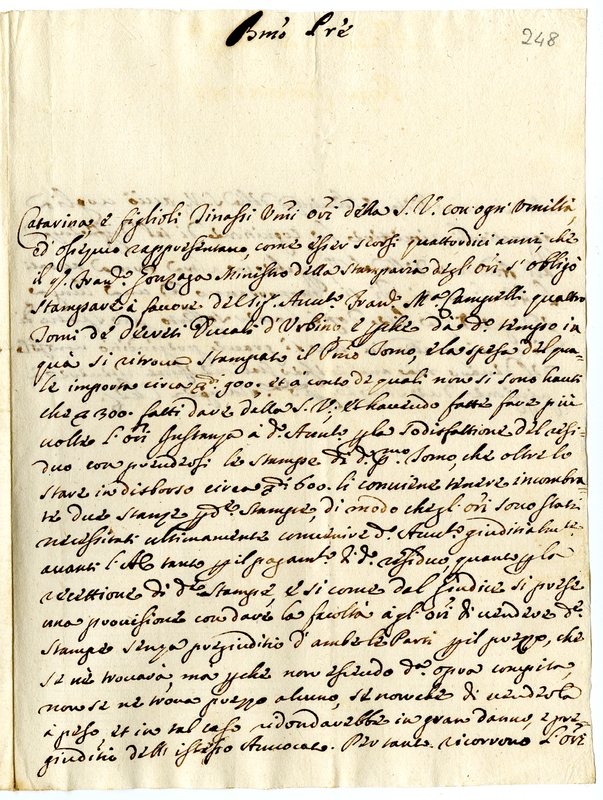 Bmo Pre
248
Catarina, e figlioli Tinassi Umi Ori della S. V. con ogni umiltà,
ed ossequio rappresentano, come esser scorsi quattordici anni, che
il q. Franco Gonzaga Ministro della Stamparia degl'Ori s'obligò
stampare à favore del Sig. Auuto Franco Ma Campelli quattro
Tomi de Decreti Ducali d'Urbino e pche da do tempo in
quà si ritrova stampato il Pmo Tomo, e la spesa del qua-
le importa circa 900. et à conto de quali non si sono hauti
che 300. fatti dare dalla S. V., et havendo fatte fare più
volte l'Ori Instanza à do Auuto p la sodisfattione del resi-
duo con prendersi le stampe di do pmo Tomo, che oltre lo
stare in disborso circa di 600. li conviene tenere incombra-
te due stanze p de stampe, di modo che gl'Ori sono stati
necessitati ultimamente convenire do Auuto giuditialmte
avanti l'AC tanto p il pagamto di do residuo, quanto p la
recettione di de stampe, e si come dal Giudice si prese
una provisione con dare la facoltà à gl'Ori di vendere de
stampe senza pregiuditio d'ambe le Parti p il prezzo, che
se nè trovarà, ma pche non essendo da opra compita,
non se ne trova prezzo alcuno, se non che di venderla
à peso, et in tal caso ridondarebbe in gran danno, e pre-
giuditio dello istesso Avvocato. Per tanto ricorrono l'Ori